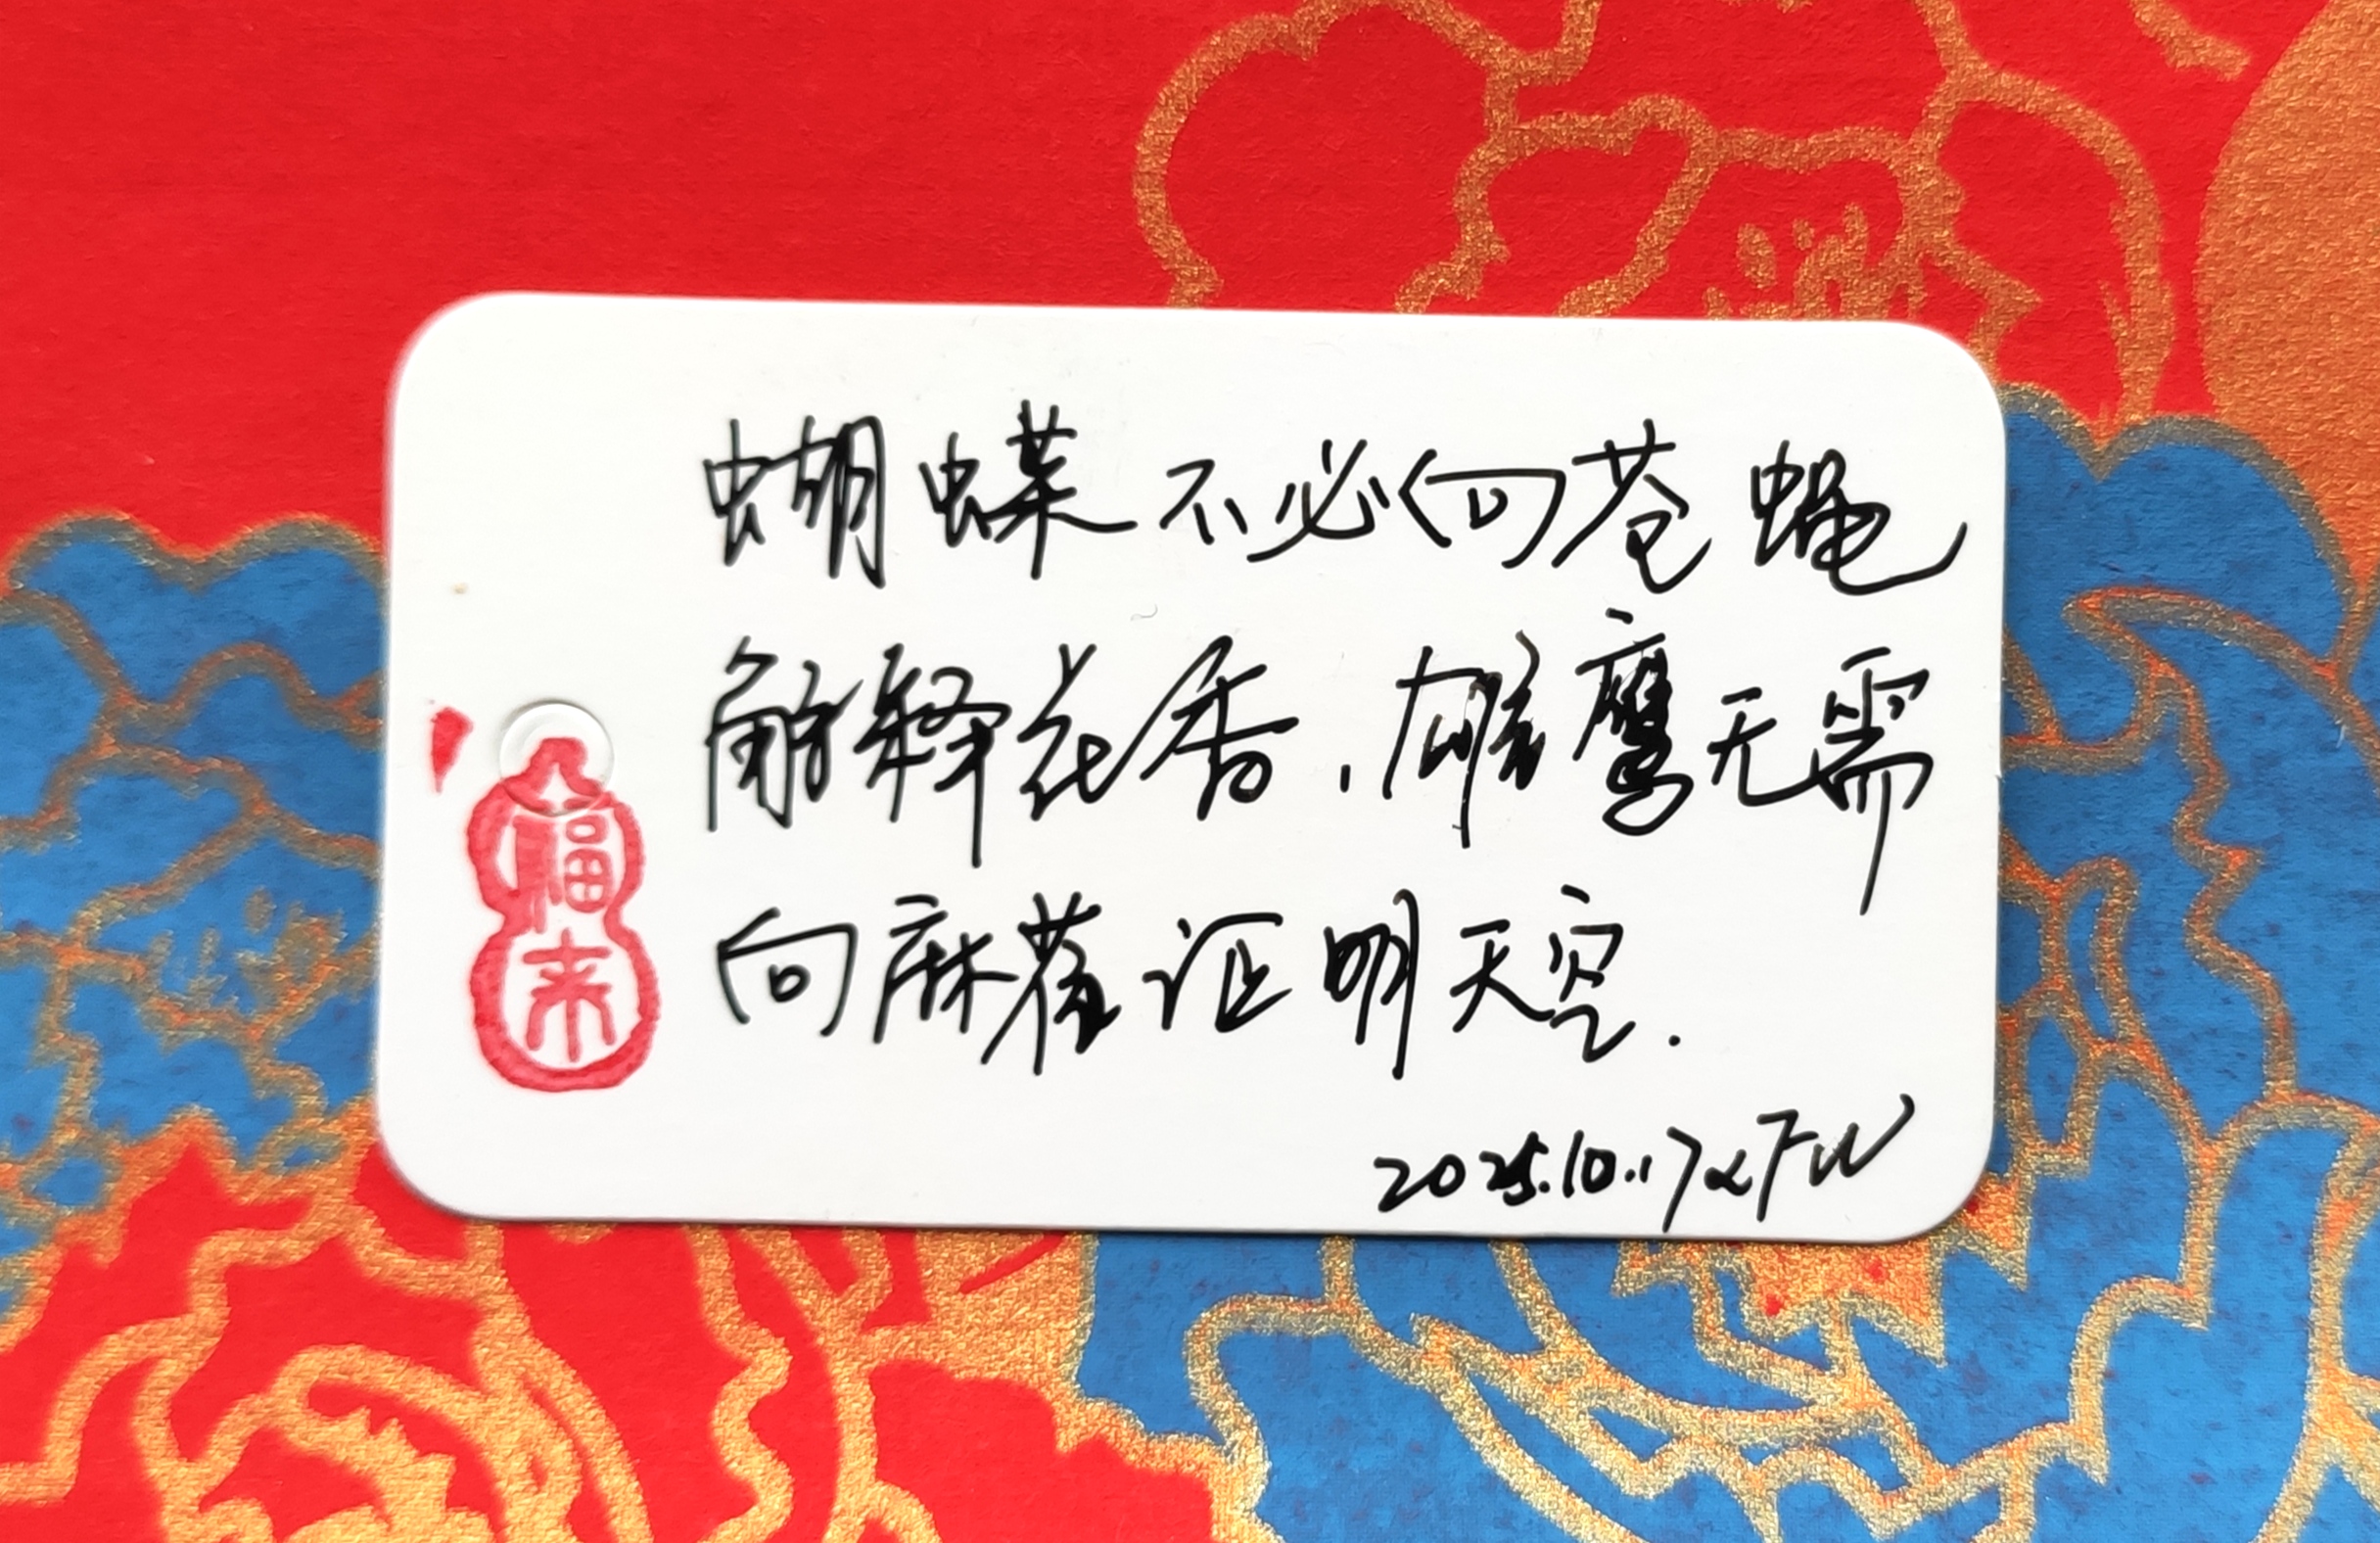 蝴蝶不必向苍蝇
解释花香,雄鹰无需
向麻雀证明天空.
2025.10.17
福
来